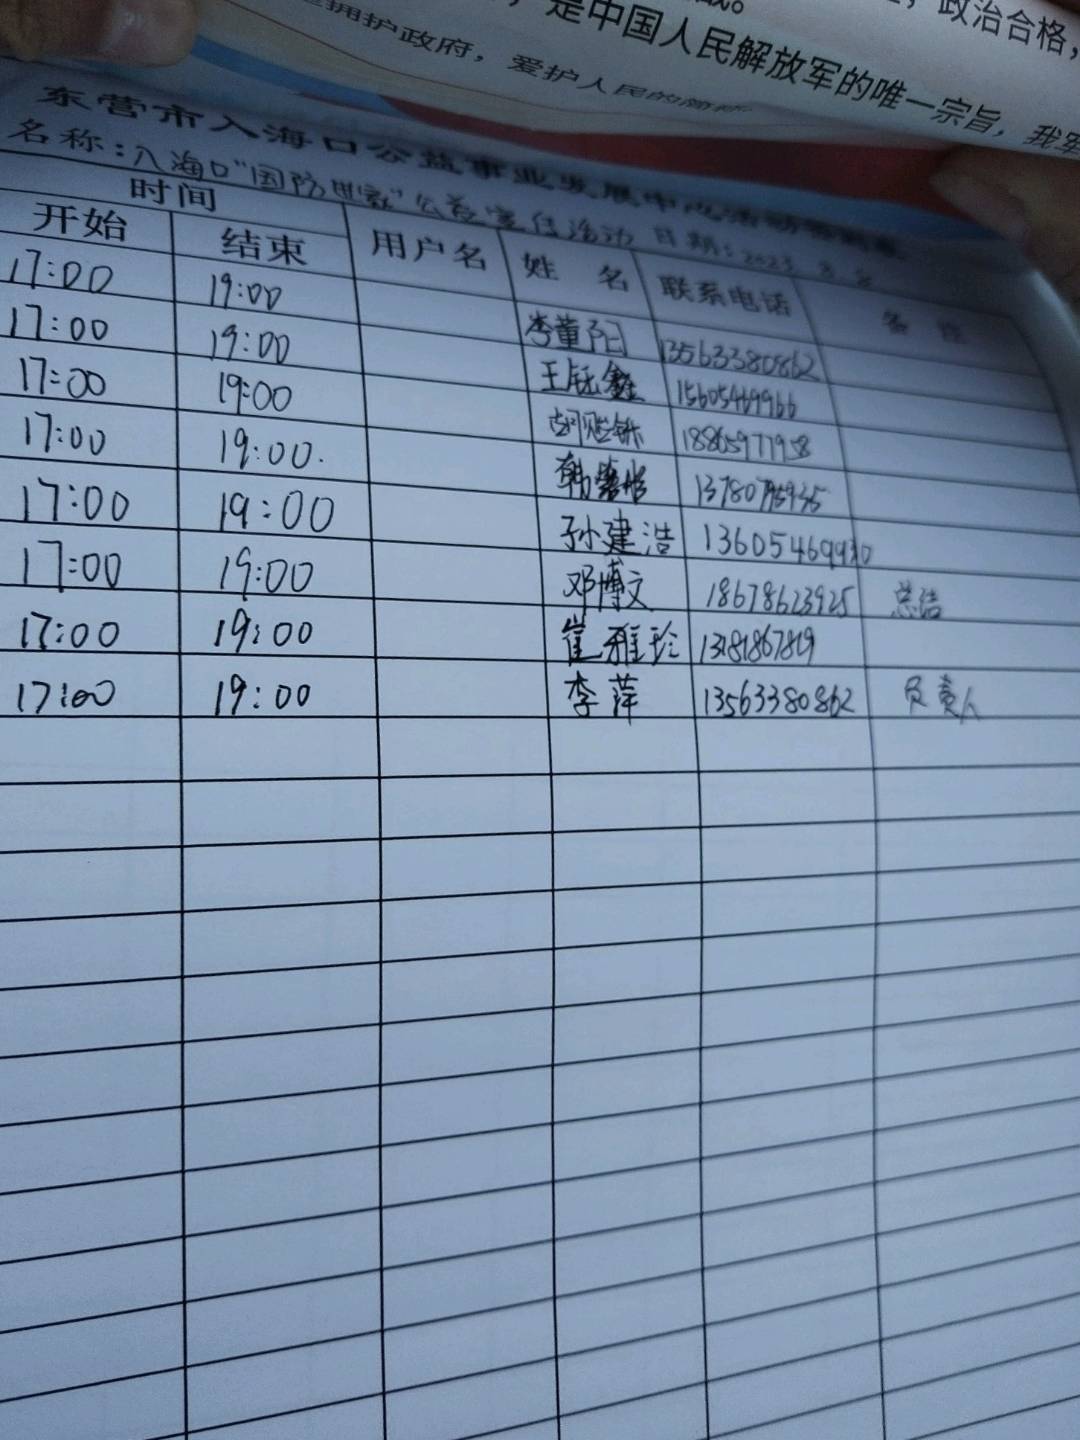 是中国人民解放军的唯一宗旨，我军
政治合格，
拥护政府，爱护人民的
东营市入海口公益事业发展中心活动签到表
名称：入海口"国防 " 公益宣传活动 日期：2023 8 8
时间 用户名 姓 名 联系电话 备 注
开始 结束
17:00 19:00 李董阳 13563380862
17:00 19:00 王钰鑫 15605469966
17:00 19:00 18865971958
17:00 19:00. 韩
17:00 19:00 孙建浩 13605469930
17:00 19:00 邓博文 18678623925 总结
17:00 19:00 崔雅珍
17:00 19:00 李萍 13563380862 负责人